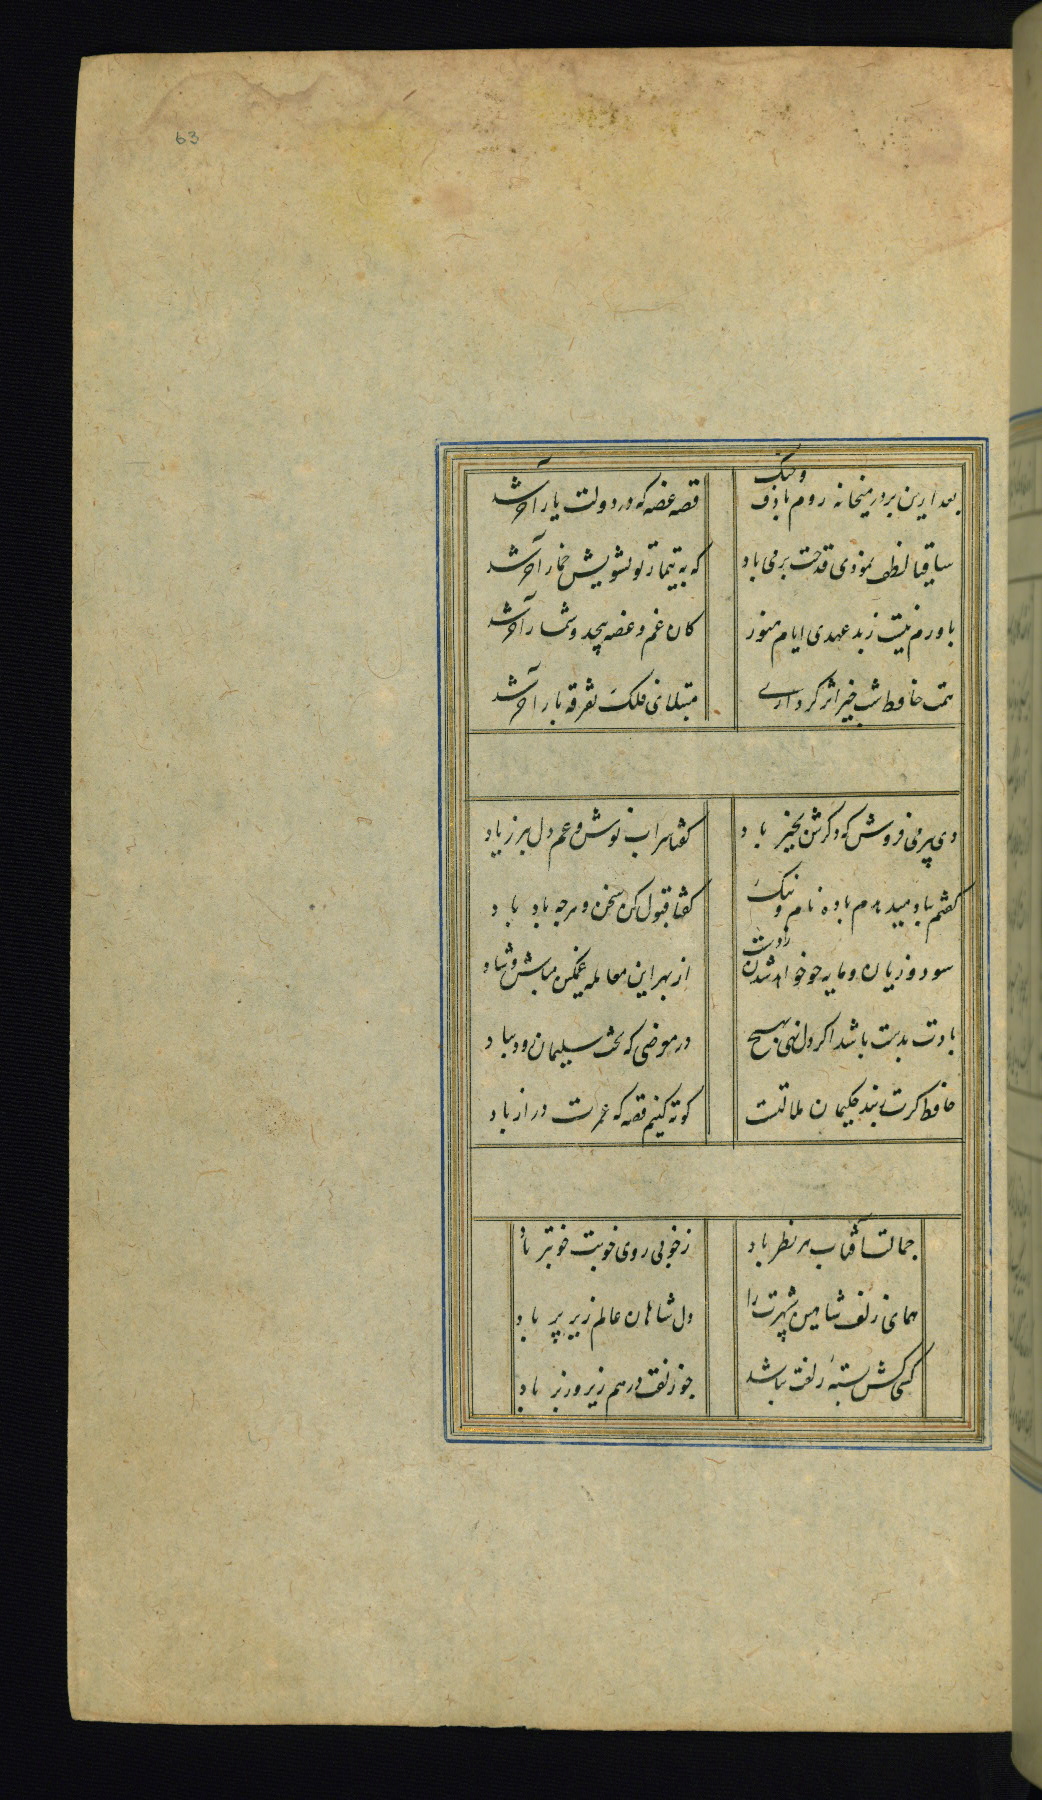 63
بعد ازین بر در میخانه روم با دف و چنگ
قصه غصه که در دولت یار آخر شد
ساقیا لطف نمودی قدحت پر می باد
که به تیمار تو تشویش خمار آخر شد
باورم نیست ز بد عهدی ایام هنوز
کان غم و غصه بیحد و شمار آخر شد
همت حافظ شب خیز اثر کرد آری
فلک تفرقه بار آخر شد
دی پیر می فروش که ذکرش بخیر باد
گفتا شراب نوش و غم دل ببر ز یاد
گفتم بباد میدهدم باده نام و ننگ
گفتا قبول کن سخن و هرچه باد باد
سود و زیان و مایه چو خواهد شدن ز دست
از بهر این معامله غمگین مباش و شاد
بادت بدست باشد اگر دل نهی بهیچ
در موضعی که تخت سلیمان رود بباد
حافظ گرت ز پند حکیمان ملالتست
کوته کنیم قصه که عمرت دراز باد
جمالت آفتاب هر نظر باد
ز خوبی روی خوبت خوبتر باد
همای زلف شاهین شهپرت را
دل شاهان عالم زیر پر باد
کسی کش بسته زلفت نباشد
چو زلفت درهم و زیر و زبر باد